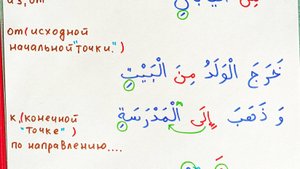 из, от
от (исходной
начальной "точки")
خَرَجَ الْوَلَدُ مِنَ الْبَيْتِ
к (конечной
"точке")
по направлению....
وَ ذَهَبَ إِلَى الْمَدْرَسَةِ